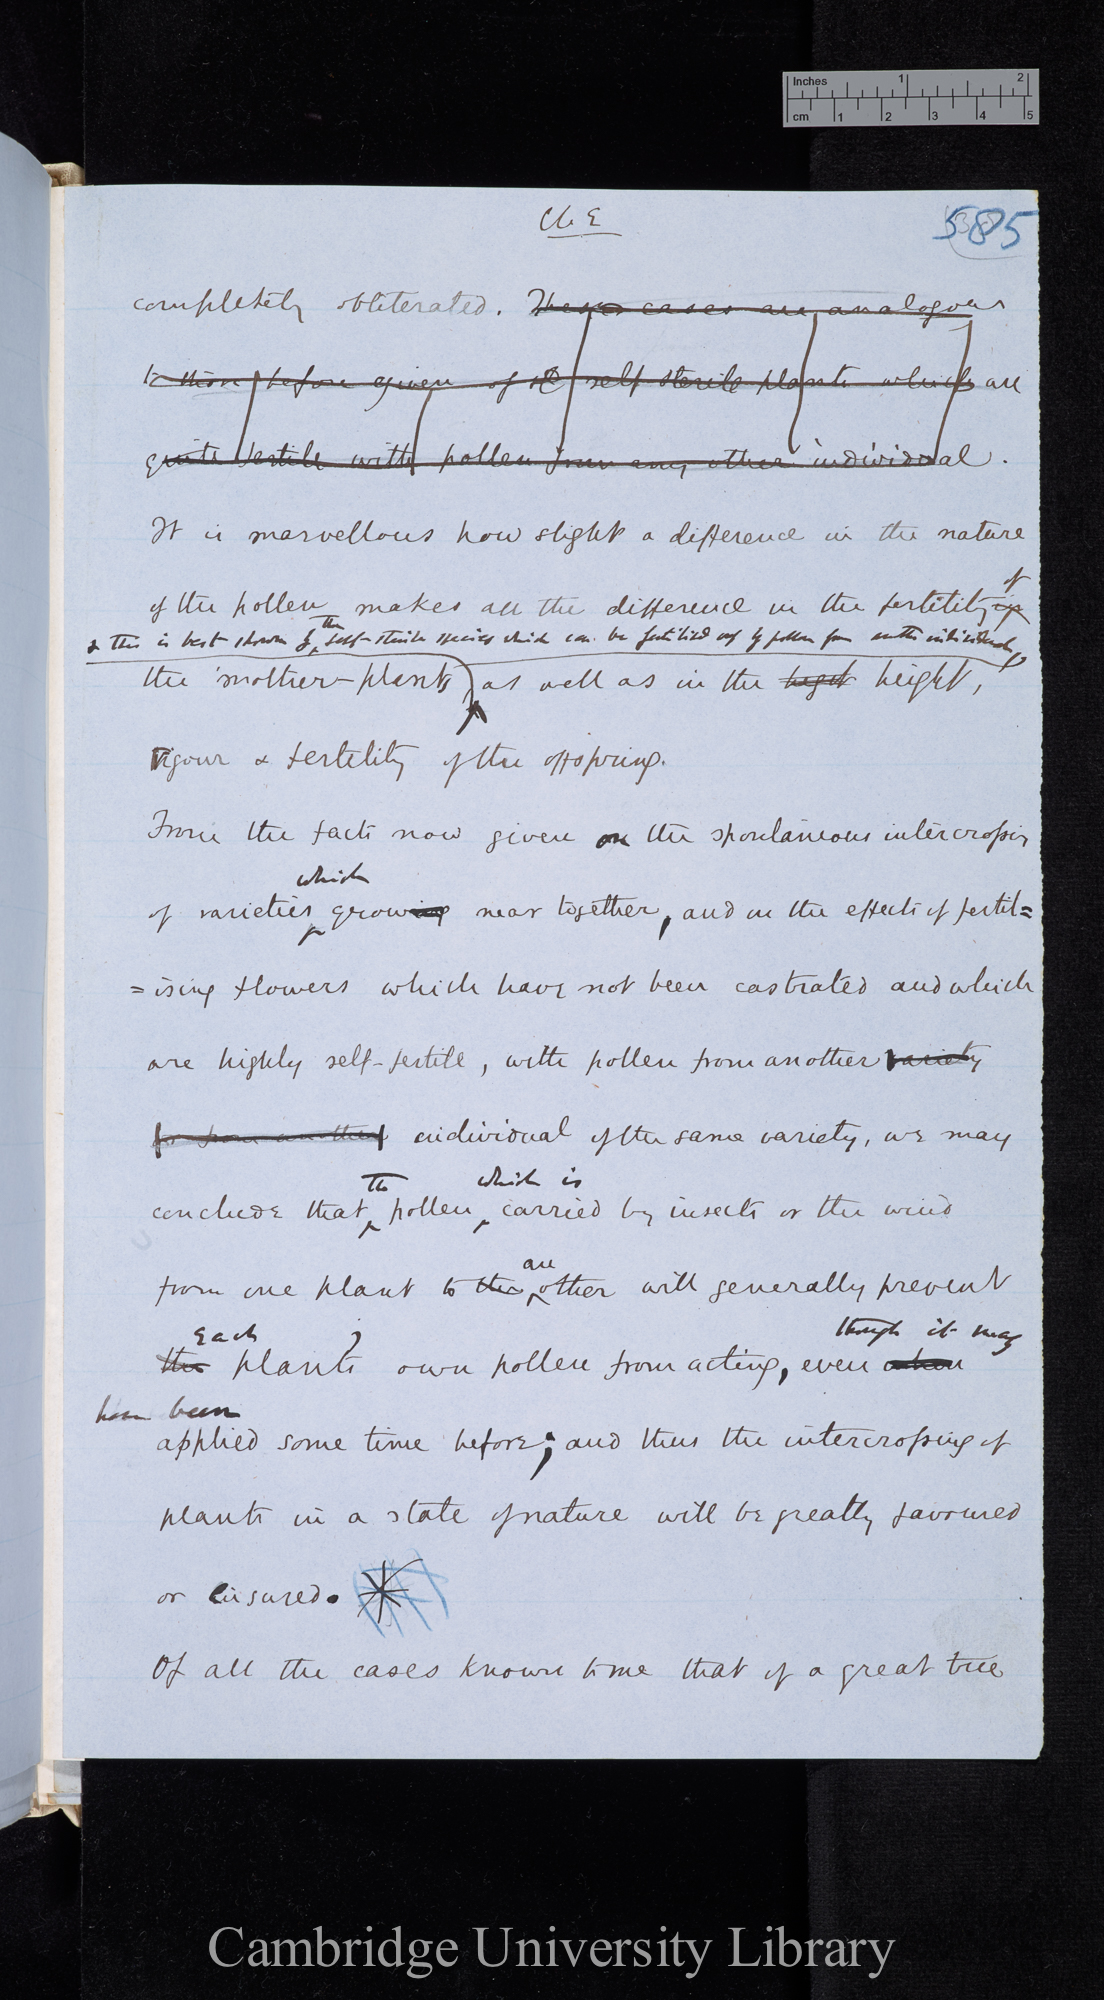 Inches 1 2
cm 1 2 3 4 5
Ch. E
585
completely obliterated. These cases are analogous
to those before given of self sterile plants which are
quite fertile with pollen from any other individual.
It is marvellous how slight a difference in the nature
of
of the pollen makes all the difference in the fertility
& this is best shown by the self-sterile species which can be fertilised only by pollen from another individual,
the mother-plant, as well as in the height height,
vigour & fertility of the offspring.
From the facts now given on the spontaneous intercrossing
which
of varieties growing near together, and on the effects of fertil=
=ising flowers which have not been castrated and which
are highly self-fertile, with pollen from another variety
or from another individual of the same variety, we may
the which is
conclude that pollen carried by insects or the wind
an
from one plant to the other will generally prevent
Each though it may
the plant's own pollen from acting, even when
have been
applied some time before; and thus the intercrossing of
plants in a state of nature will be greatly favoured
or ensured.
Of all the cases known to me that of a great tree
Cambridge University Library